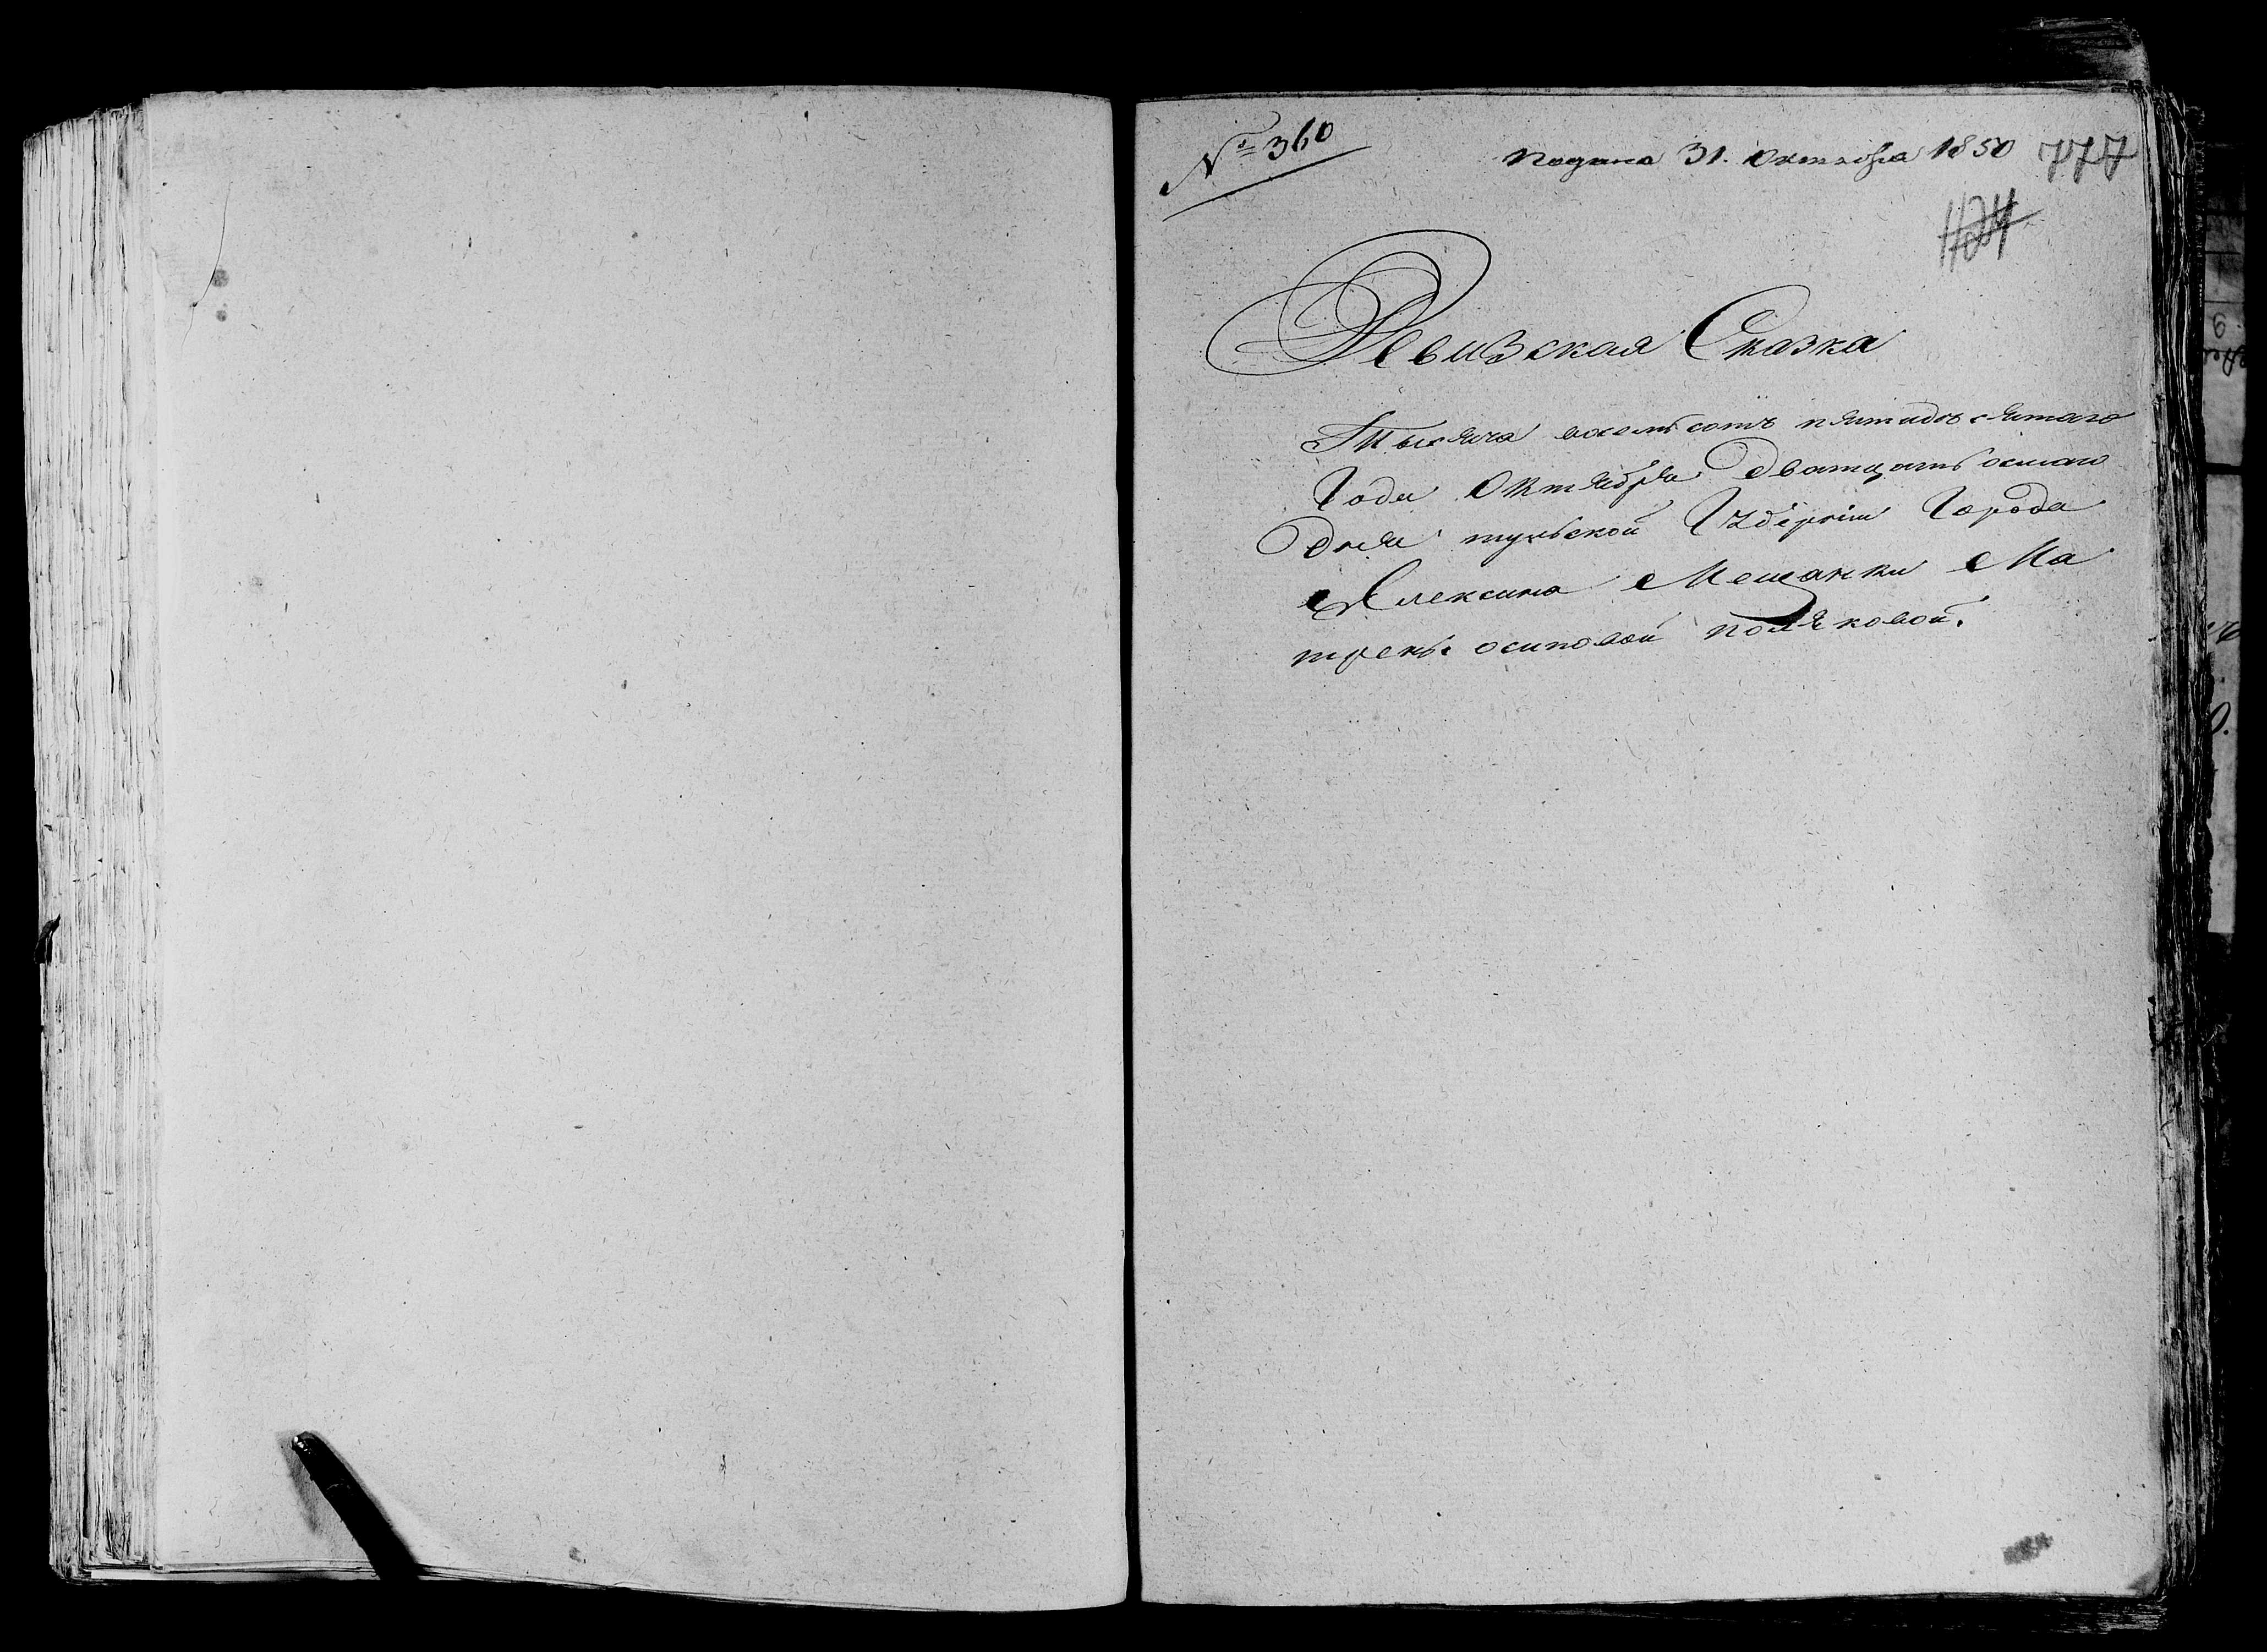 № 360
Подана 31. Октября 1850 777
Ревизская Сказка
Тысяча восемьсотъ пятидесятаго
Года Октября Дватцать осмаго
Дня тульской Губерніи Города
Алексина Мещанки Ма
трены осиповой поляковой.